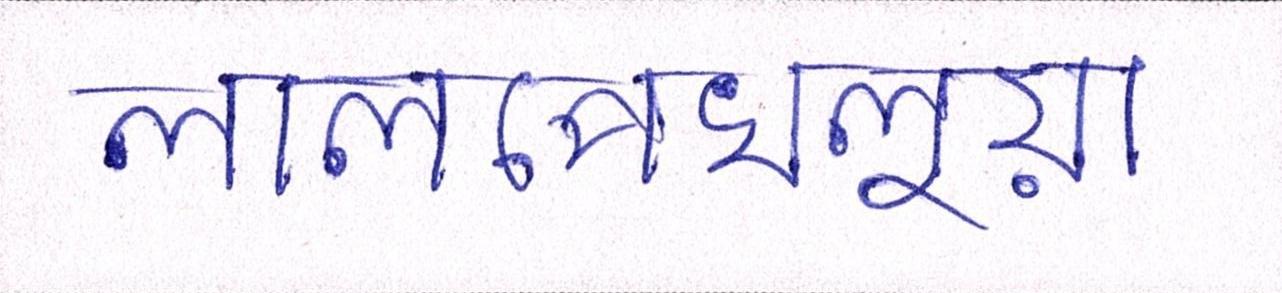 লালমেখলূয়া